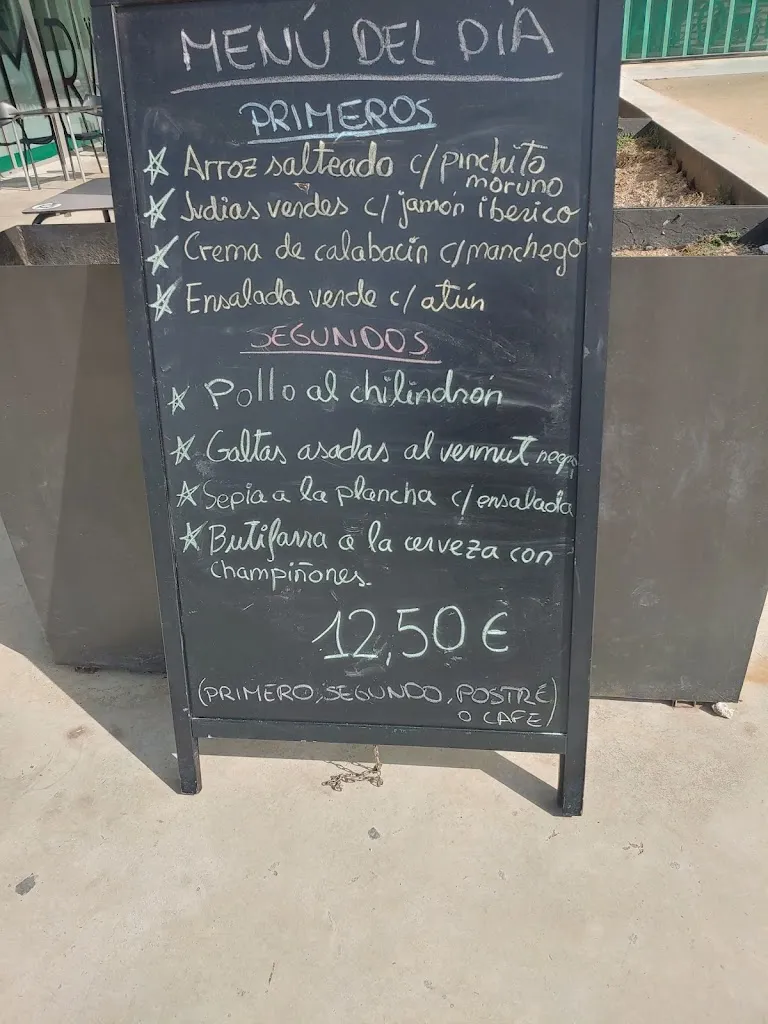 MENÚ DEL DÍA
PRIMEROS
Arroz salteado c/pinchito
moruno
Judias verdes c/ jamón iberico
Crema de calabacín c/manchego
Ensalada verde c/ atún
SEGUNDOS
Pollo al chilindron
Galtas asadas al vermut negro
Sepia a la plancha c/ensalada
Butifarra a la cerveza con
champiñones.
12,50 €
(PRIMERO, SEGUNDO, POSTRE
O CAFE)